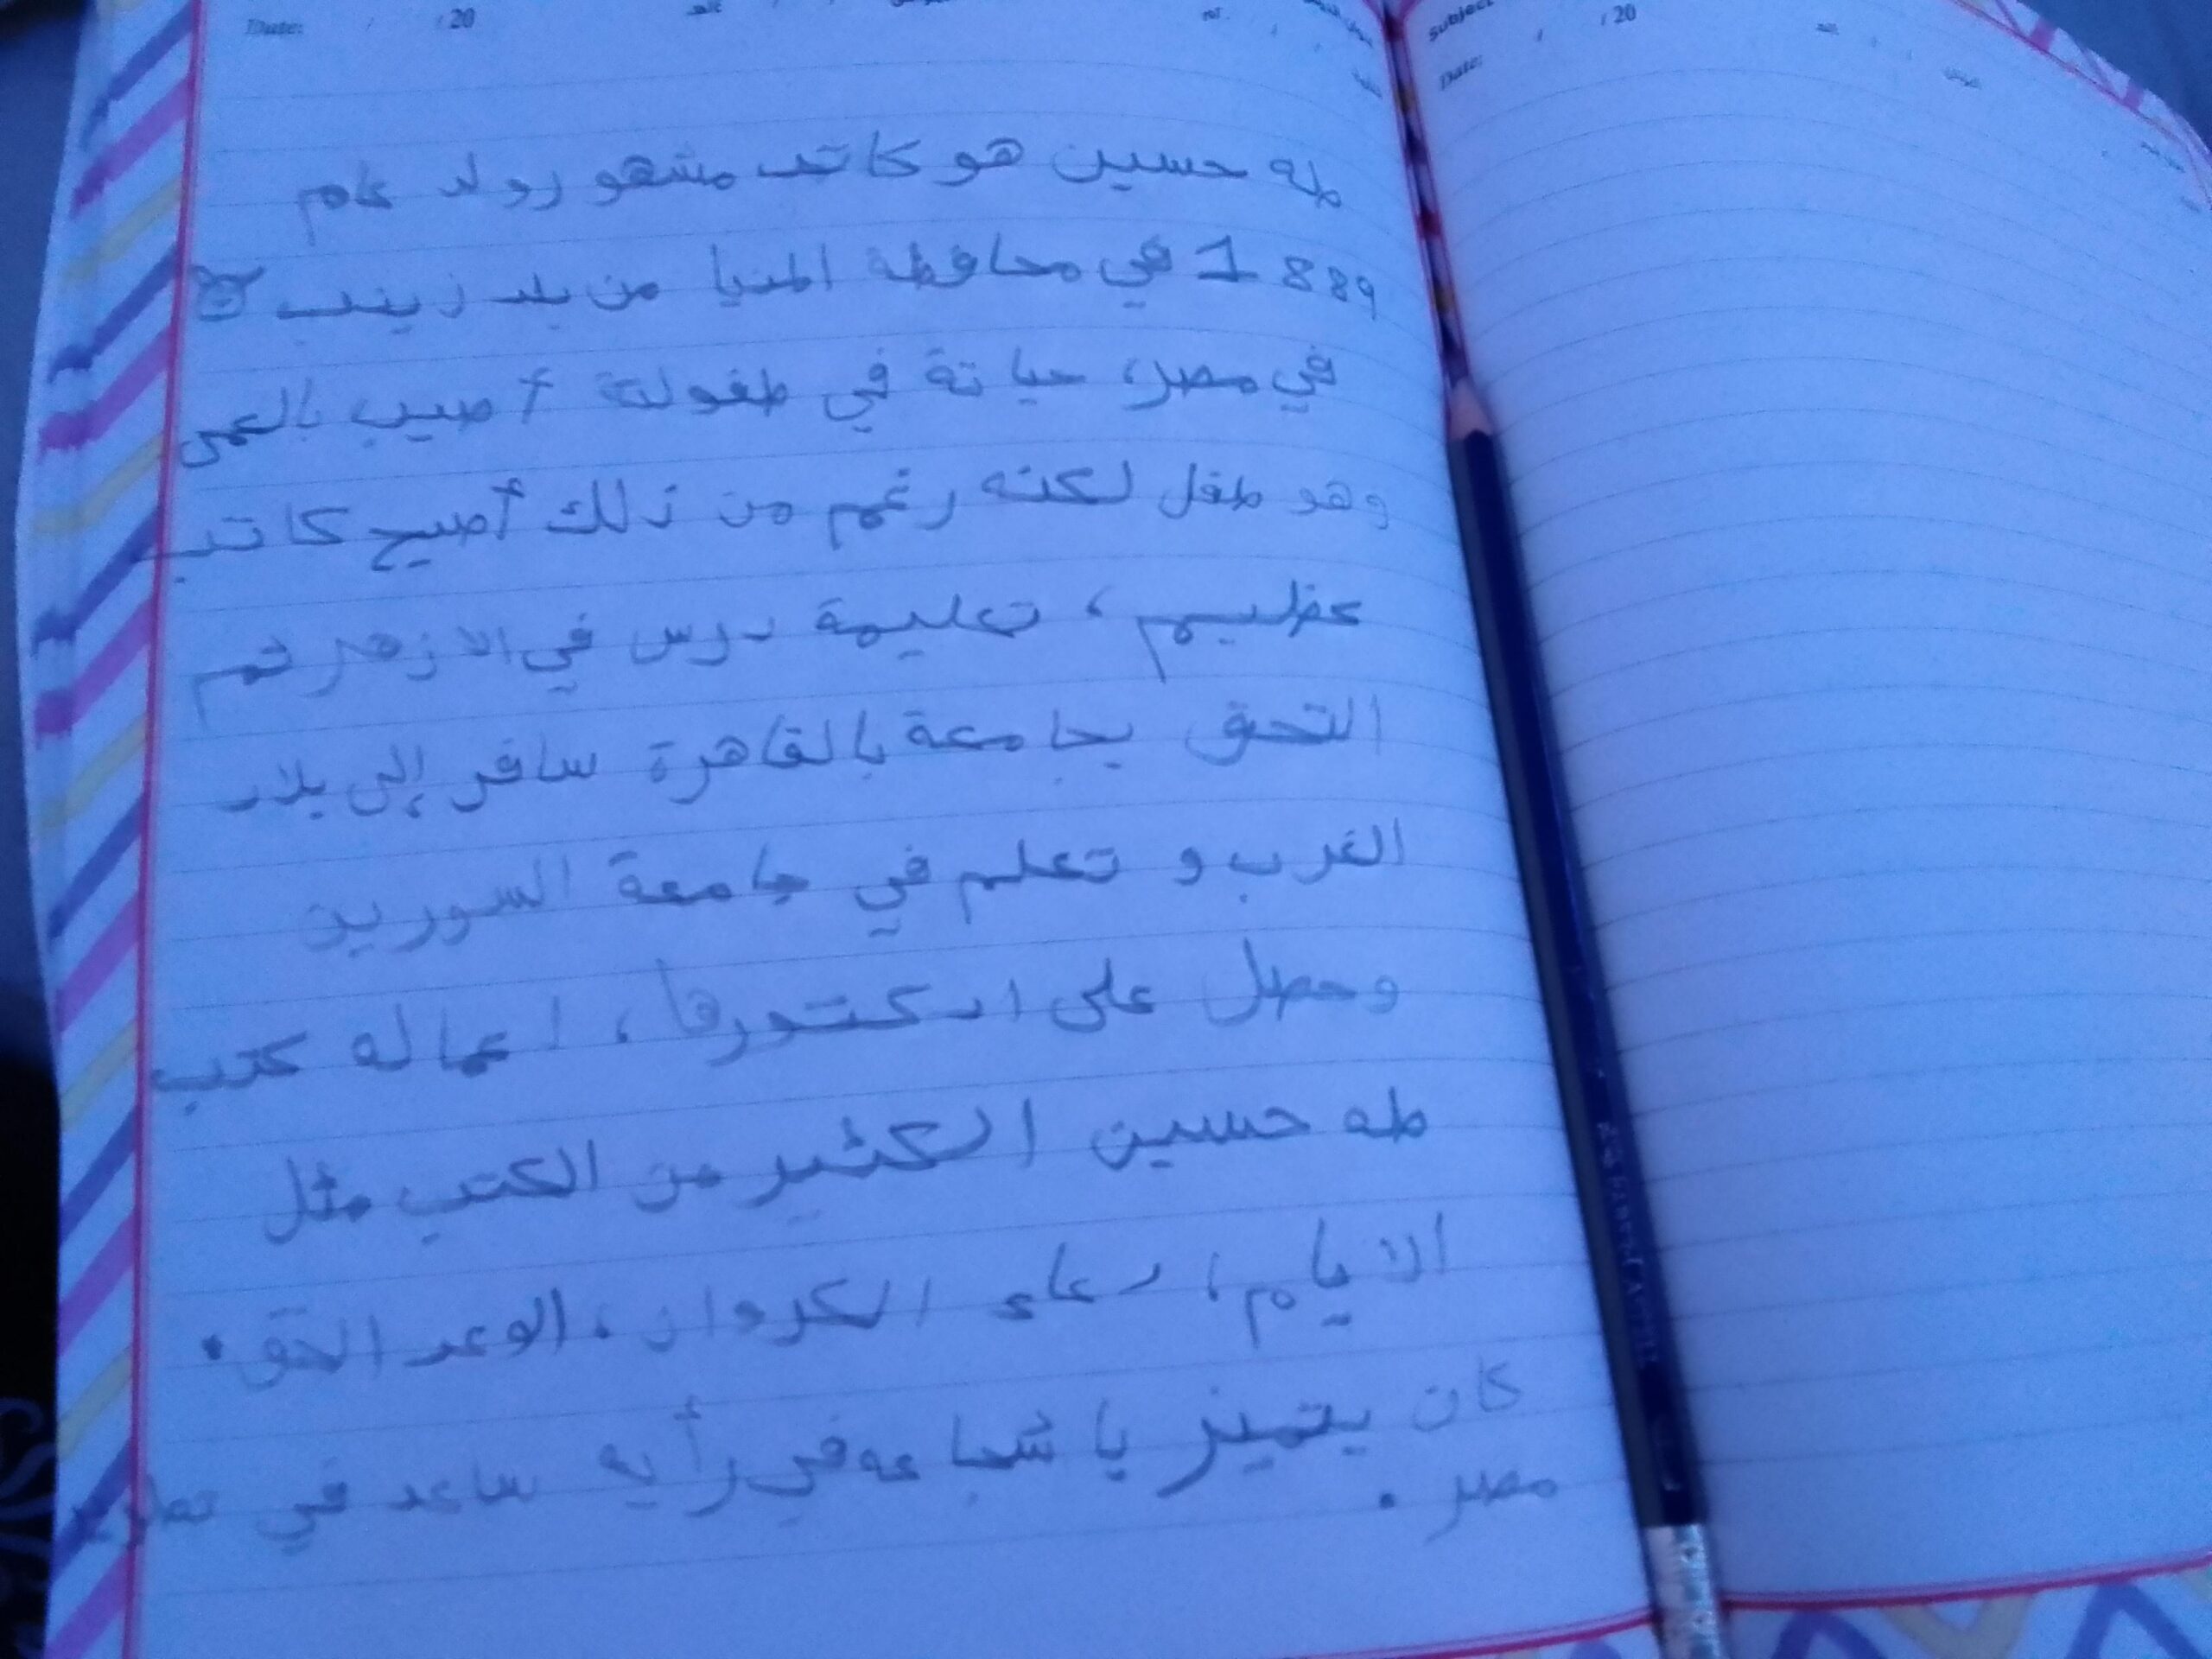 Date: / /20
Subject
Date: / /20
طه حسين هو كاتب مشهور ولد عام
1889 في محافظة المنيا من بلد زينب
في مصر، حياتة في طفولتة أصيب بالعمى
وهو طفل لكنه رغم من ذلك أصبح كاتب
عظيم، تعليمة درس في الازهر ثم
التحق بجامعة بالقاهرة سافر إلى بلاد
الغرب و تعلم في جامعة السوربن
وحصل على الدكتورها، اعماله كتب
طه حسين الكثير من الكتب مثل
الايام، دعاء الكروان، الوعد الحق.
كان يتميز باشجاعه في رأيه ساعد في تطوير
مصر.